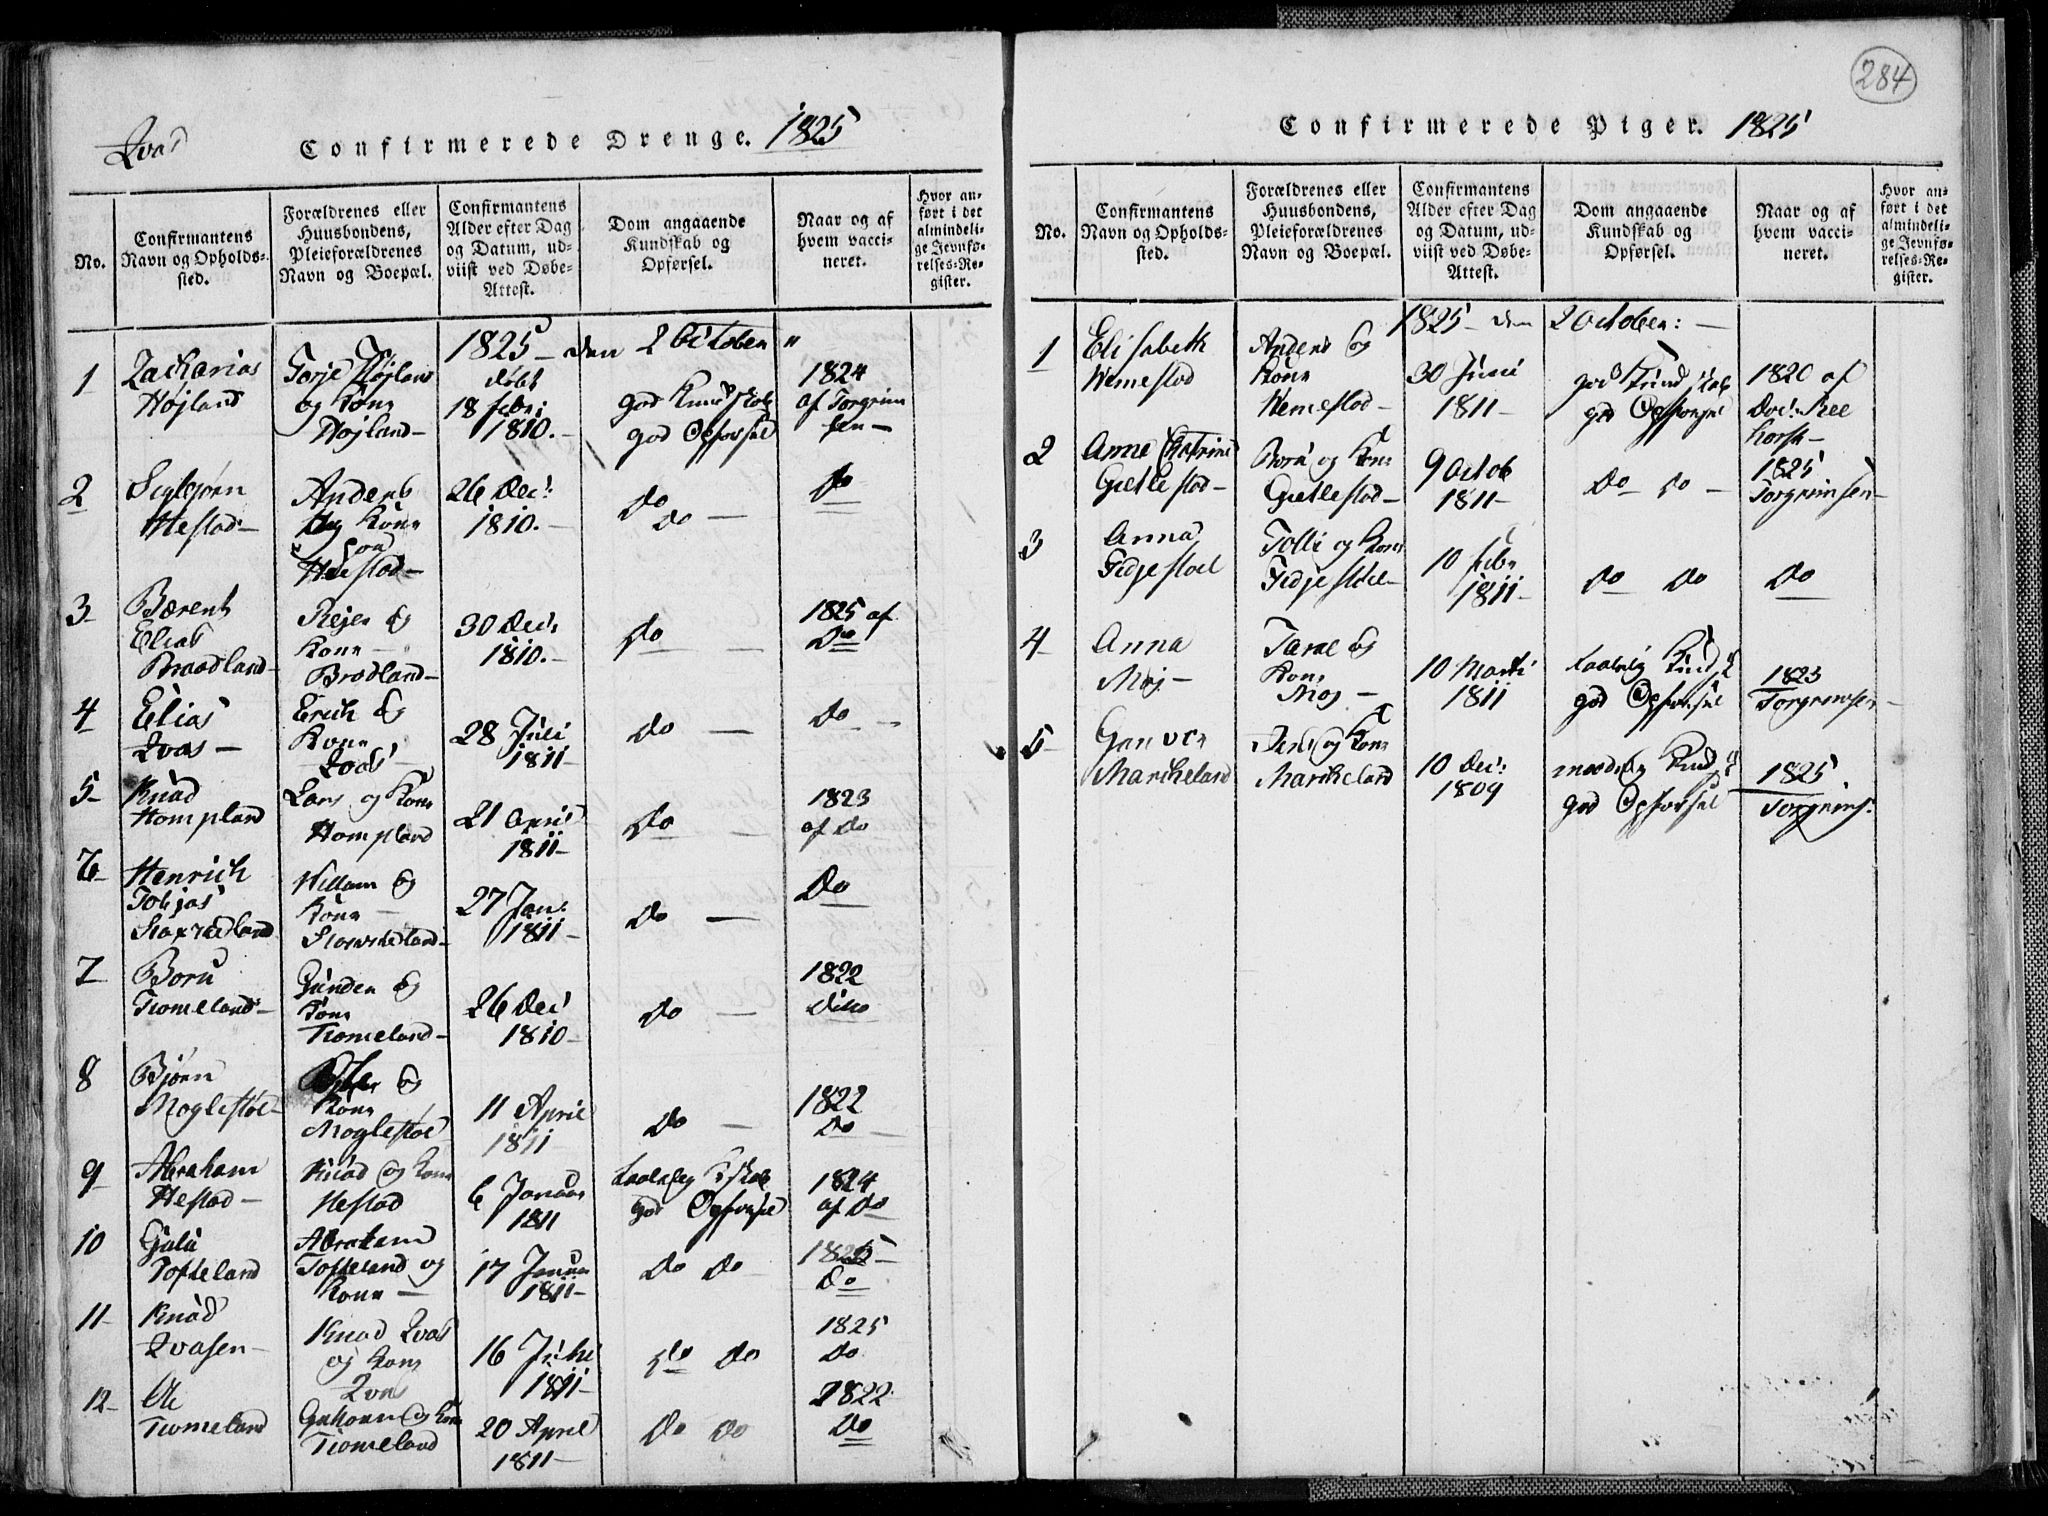 284
Qvas
Confirmerede Drenge. 1825
No.
Confirmantens
Navn og Opholds-
sted.
Forældrenes eller
Huusbondens,
Pleieforældrenes
Navn og Boepæl.
Confirmantens
Alder efter Dag
og Datum, ud-
viist ved Døbe-
Attest.
Dom angaaende
Kundskab og
Opførsel.
Naar og af
hvem vacci-
neret.
Hvor an-
ført i det
almindeli-
ge Jevnfø-
relses-Re-
gister.
1825 - den 2 October "
1
Zacharias
Højland
Torje Højland
og Kone
Højland -
døbt
18 Febr:
1810. -
god Kundskab
god Opførsel
1824
af Torgrim
sen -
2
Sigbjørn
Hestad -
Anders
og Kone
Hestad -
26 Dec:
1810. -
Do
Do -
Do
3
Bærent
Elias
Braadland -
Rejer og
Kone -
Brodland -
30 Dec:
1810. -
Do -
1825 af
Do
4
Elias
Qvas -
Erich og
Kone
Qvas
28 Juli
1811 -
Do -
Do -
5
Knud
Hompland
Lars og Kone
Hompland
21 April
1811 -
Do -
1823
af Do
6
Henrich
Tobjas
Willum og
Kone -
27 Jan:
1811 -
Do -
Do
7
Boru
Tromeland -
Gunder og
Kone
Tromeland -
26 Dec
1810 -
Do -
1822
Ditto
8
Bjørn
Moglestøl -
og
Kone
Moglestøl
11 April
1811
Do -
1822
Do -
9
Abraham
Hestad -
Knud og Kone
Hestad
6 Januar
1811
taalelig Kskab
god Opførsel
1824
af Do
10
Tofteland
Abraham
Tofteland og
Kone -
17 Januar
1811 -
Do Do -
1825
Do
11
Knud
Qvasen -
Knud Qvas
og Kone
Qvas
16
1811 -
Do Do
1825
Do
12
Ole
Tromeland
og Kone
Tromeland
20 April
1811 -
Do Do
1822
Do
Confirmerede Piger. 1825
No.
Confirmantens
Navn og Opholds-
sted.
Forældrenes eller
Huusbondens,
Pleieforældrenes
Navn og Boepæl.
Confirmantens
Alder efter Dag
og Datum, ud-
viist ved Døbe-
Attest.
Dom angaaende
Kundskab og
Opførsel.
Naar og af
hvem vacci-
neret.
Hvor an-
ført i det
almindeli-
ge Jevnfø-
relses-Re-
gister.
1825 - den 2 October: -
1
Elisabeth
Hemestad
Anders og
Kone
Hemestad -
30 Juni
1811 -
god Kundskab
god Opførsel
1820 af
2
Anne Chatrine
Gietlestad -
Boru og Kone
Gietlestad -
9 Octob
1811 -
Do Do -
1825
Torgrimsen -
3
Anna
Fidjestøel
Tolli og Kone
Fidjestøel -
10 Febr
1811 -
Do Do
Do
4
Anna
Moj -
Tarel og
Kone
Moj -
10 Marti
1811
taalelig Kundsk
god Opførsel
1823
Torgrimsen -
5
Marcheland
og Kone
Marcheland
10 Dec:
1809
maadelig Kundsk
god Opførsel
1825
Torgrims.